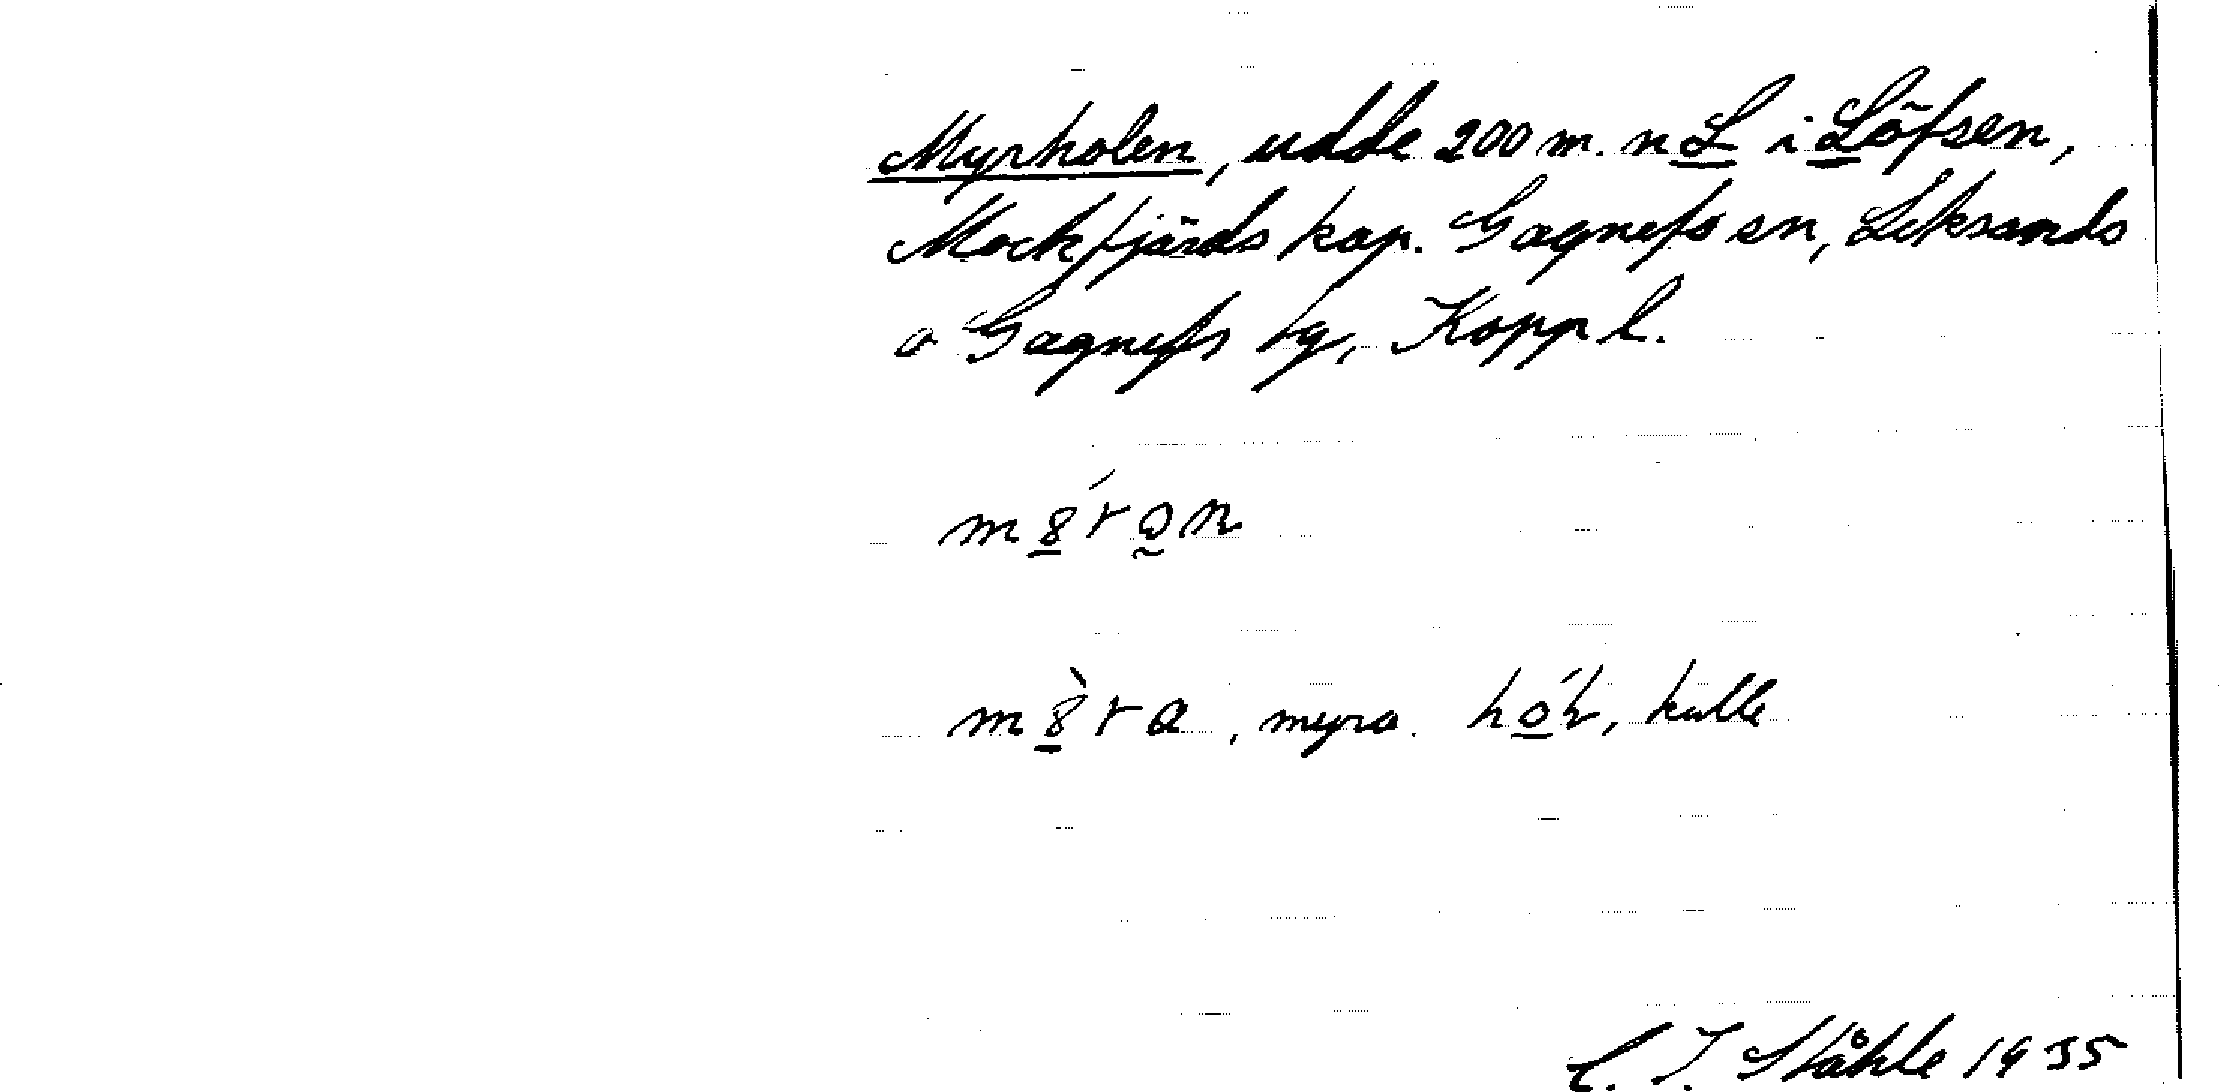 Myrholen, udde 200 m. n L i Löfsen,
Mockfjärds kap. Gagnefs sn, Leksands
o Gagnefs tg, Kopp l.
, myra. , kulle
C. I. Ståhle 1935